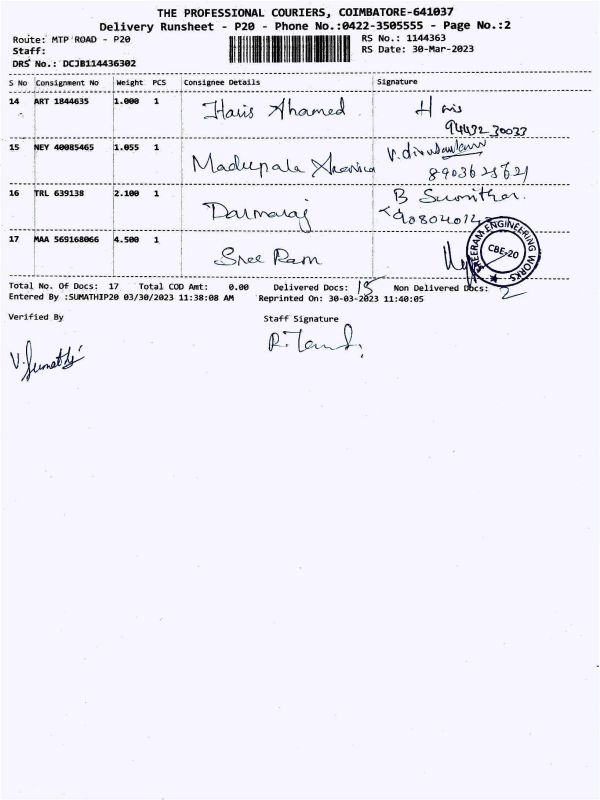 THE PROFESSIONAL COURIERS, COIMBATORE-641037
Delivery Runsheet - P20 - Phone No.:0422-3505555 - Page No.:2
Route: MTP ROAD - P20 RS No.: 1144363
Staff: RS Date: 30-Mar-2023
DRS No.: DCJB114436302
S No Consignment No Weight PCS Consignee Details Signature
14 ART 1844635 1.000 1 Haris Ahamed Haris
94432 30033
15 NEY 40085465 1.055 1 Madupala
8903623621
16 TRL 639138 2.100 1 Darmaraj B Sumithra.
17 MAA 569168066 4.500 1 Sree Ram
SREERAM ENGINEERING WORKS
CBE-20
Total No. Of Docs: 17 Total COD Amt: 0.00 Delivered Docs: 15 Non Delivered Docs: 2
Entered By :SUMATHIP20 03/30/2023 11:38:08 AM Reprinted On: 30-03-2023 11:40:05
Verified By Staff Signature
V. Sumathi